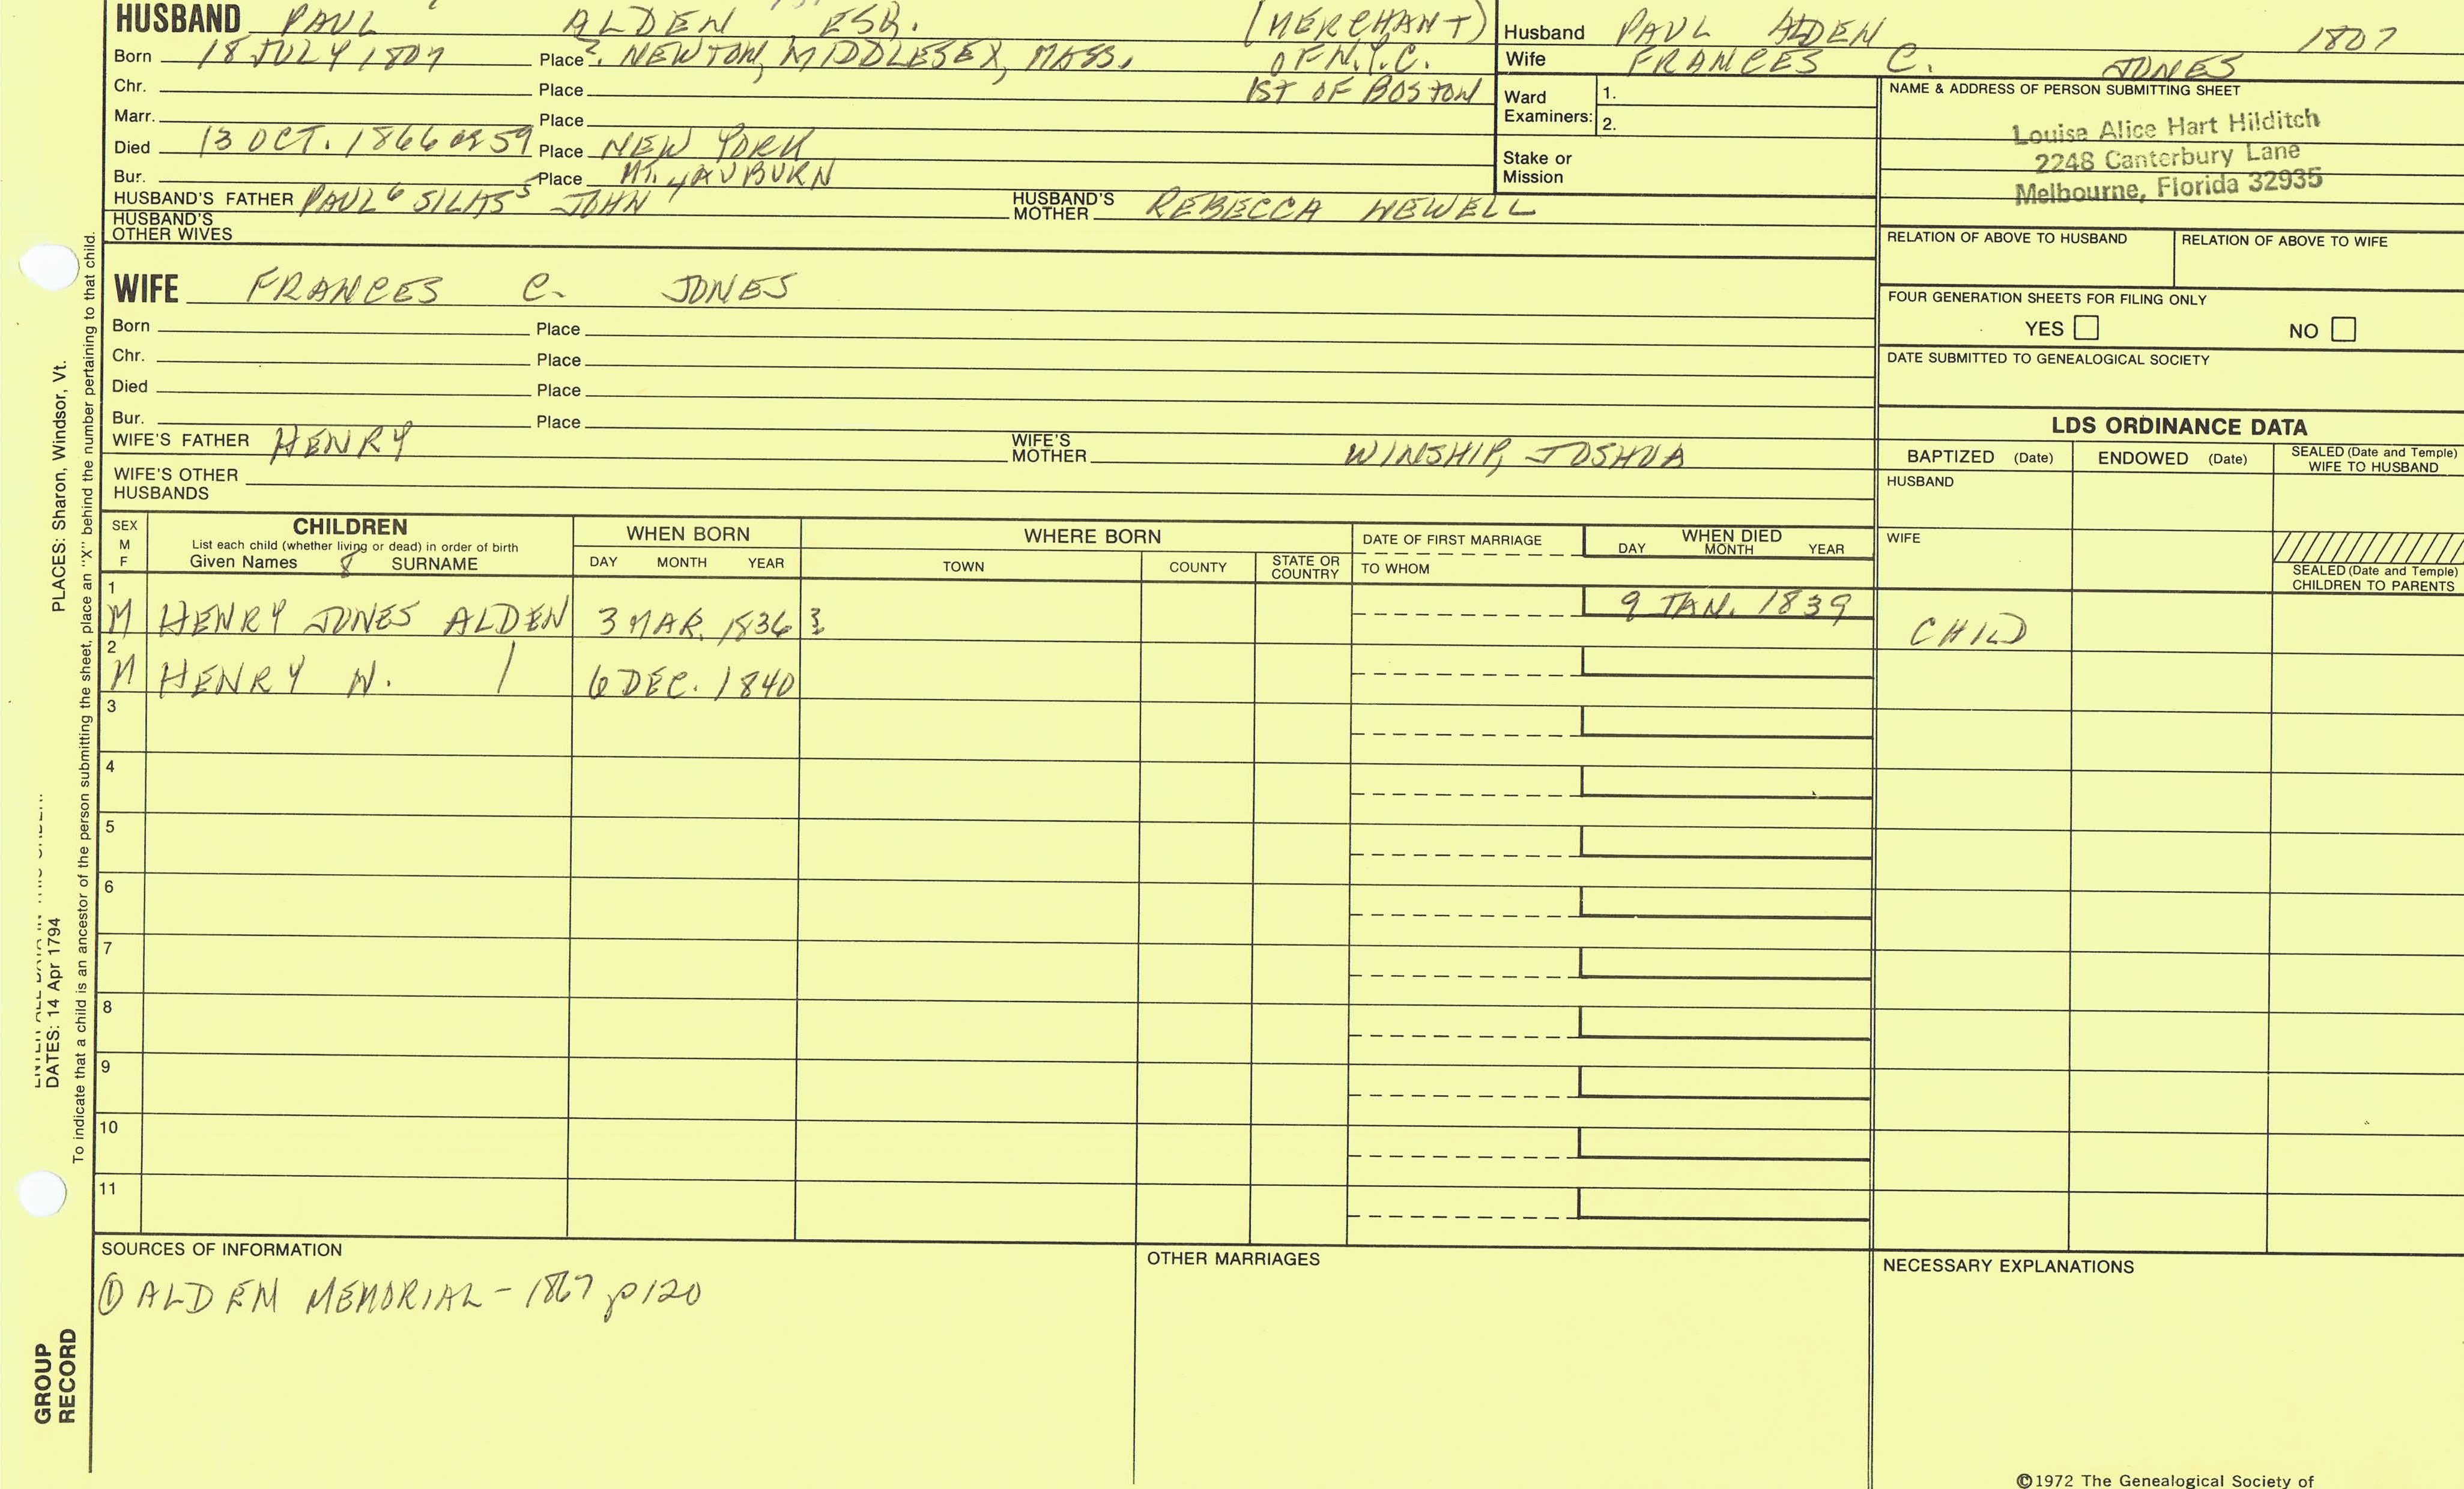 HUSBAND PAUL ALDEN ESQ. (MERCHANT)
Born 18 JULY 1807 Place ? NEWTON, MIDDLESEX, MASS. OF N.Y.C.
Chr. Place 1ST OF BOSTON
Marr. Place
Died 13 OCT. 1866 OR 59 Place NEW YORK
Bur. Place MT. AUBURN
HUSBAND'S FATHER PAUL 6 SILAS 5 JOHN 4 HUSBAND'S MOTHER REBECCA NEWELL
HUSBAND'S OTHER WIVES
Husband PAUL ALDEN 1807
Wife FRANCES C. JONES
Ward Examiners: 1.
2.
Stake or Mission
NAME & ADDRESS OF PERSON SUBMITTING SHEET
Louise Alice Hart Hilditch
2248 Canterbury Lane
Melbourne, Florida 32935
RELATION OF ABOVE TO HUSBAND RELATION OF ABOVE TO WIFE
FOUR GENERATION SHEETS FOR FILING ONLY
YES NO
DATE SUBMITTED TO GENEALOGICAL SOCIETY
WIFE FRANCES C. JONES
Born Place
Chr. Place
Died Place
Bur. Place
WIFE'S FATHER HENRY WIFE'S MOTHER WINSHIP, JOSHUA
WIFE'S OTHER HUSBANDS
LDS ORDINANCE DATA
BAPTIZED (Date) ENDOWED (Date) SEALED (Date and Temple) WIFE TO HUSBAND
HUSBAND
WIFE
SEALED (Date and Temple) CHILDREN TO PARENTS
SEX M F
CHILDREN
List each child (whether living or dead) in order of birth
Given Names 8 SURNAME
WHEN BORN
DAY MONTH YEAR
WHERE BORN
TOWN COUNTY STATE OR COUNTRY
DATE OF FIRST MARRIAGE
TO WHOM
WHEN DIED
DAY MONTH YEAR
1 M HENRY JONES ALDEN 3 MAR. 1836 ? 9 JAN. 1839 CHILD
2 M HENRY N. 6 DEC. 1840
3
4
5
6
7
8
9
10
11
SOURCES OF INFORMATION
① ALDEN MEMORIAL - 1867 p120
OTHER MARRIAGES
NECESSARY EXPLANATIONS
©1972 The Genealogical Society of
PLACES: Sharon, Windsor, Vt.
DATES: 14 Apr 1794
To indicate that a child is an ancestor of the person submitting the sheet, place an "X" behind the number pertaining to that child.
GROUP
RECORD